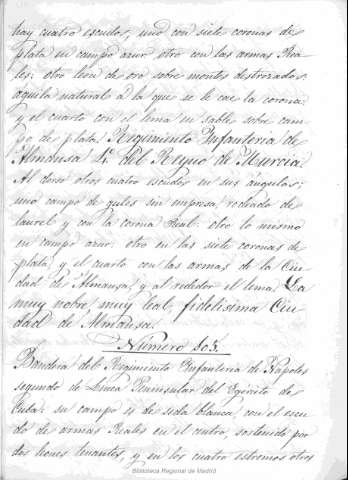 hay cuatro escudos, uno con siete coronas de
plata en campo azur otro con las armas Rea-
les; otro leon de oro sobre montes destrozados:
aguila natural a la que se le cae la corona:
y el cuarto con el lema en sable sobre cam-
po de plata, Regimiento Infanteria de
Almansa L. del Reyno de Murcia
Al dorso otros cuatro escudos en sus ángulos:
uno campo de gules sin empresa, rodeado de
laurel y con la corona Real: otro lo mismo
en campo azur: otro en las siete coronas de
plata, y el cuarto con las armas de la Ciu-
dad de Almansa, y al rededor el lema. La
muy noble, muy leal, fidelisima Ciu-
dad de Almansa.
Número 103.
Bandera del Regimiento Infanteria de Napoles
segundo de Linea Peninsular del Egército de
Cuba: su campo es de seda blanca, con el escu-
do de armas Reales en el centro, sostenido por
dos leones tenantes, y en los cuatro extremos otros
Biblioteca Regional de Madrid